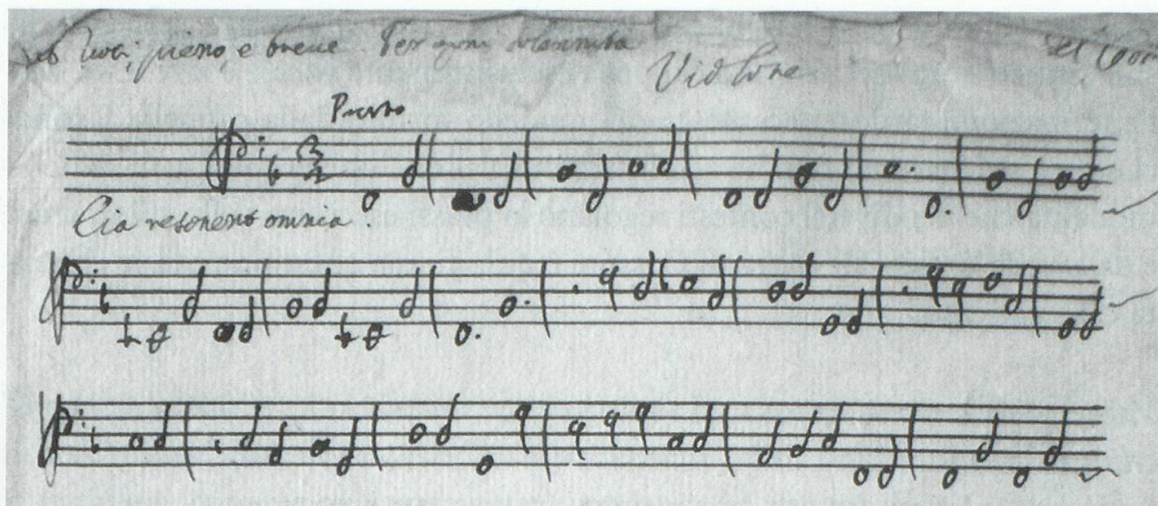 pieno, e breve. Per ogni solennità
Violone
Presto.
Eia resonent omnia.